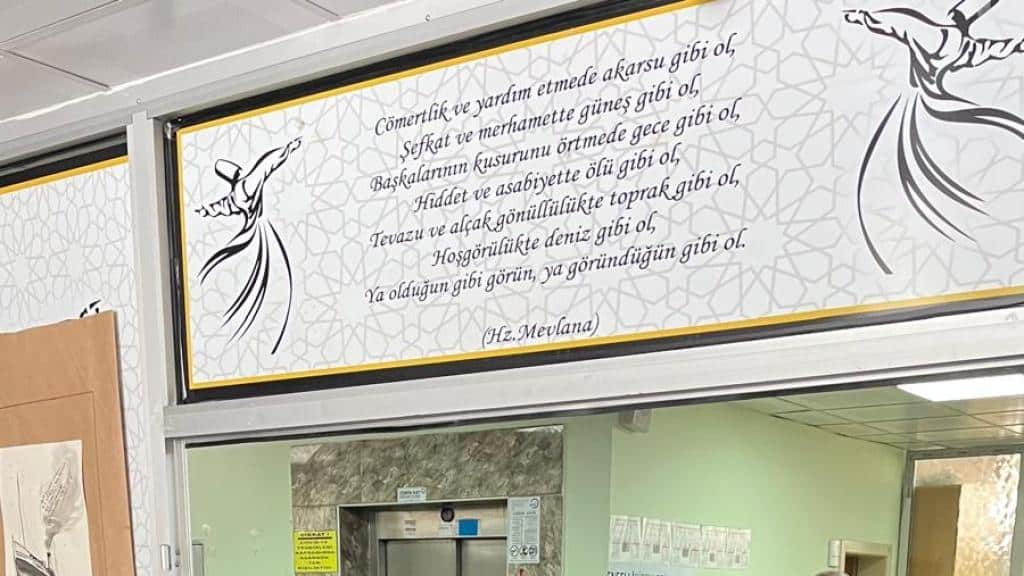 Cömertlik ve yardım etmede akarsu gibi ol,
Şefkat ve merhamette güneş gibi ol,
Başkalarının kusurunu örtmede gece gibi ol,
Hiddet ve asabiyette ölü gibi ol,
Tevazu ve alçak gönüllülükte toprak gibi ol,
Hoşgörülükte deniz gibi ol,
Ya olduğun gibi görün, ya göründüğün gibi ol.
(Hz.Mevlana)